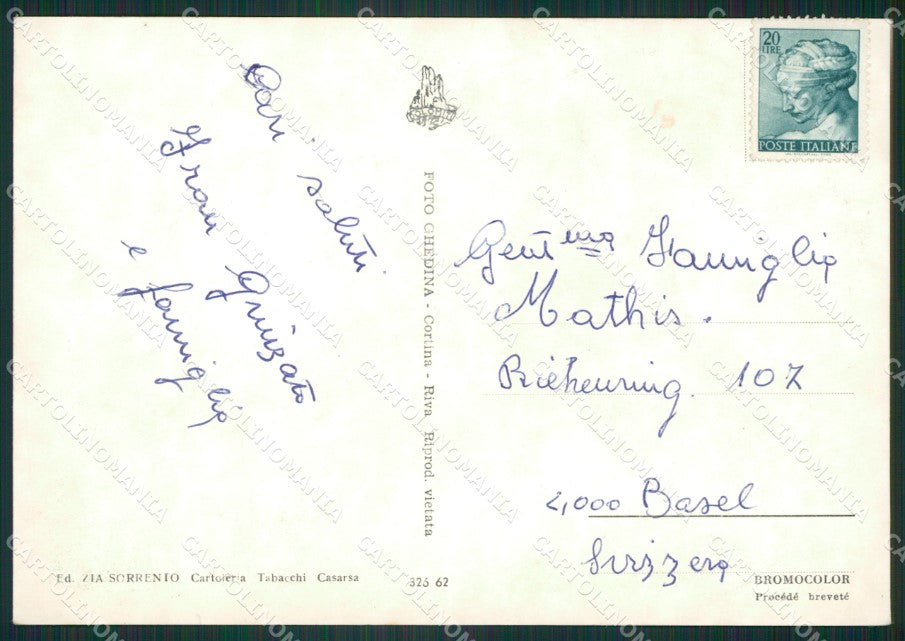 Cari saluti
Fran Grinzato
e famiglia
FOTO GHEDINA - Cortina - Riva Riprod. vietata
20
LIRE
POSTE ITALIANE
Gent.ma Famiglia
Mathis.
Riehenring. 107
4,000 Basel
Svizzera
Ed. ZIA SORRENTO Cartoleria Tabacchi Casarsa
325 62
BROMOCOLOR
Procédé breveté
CARTOLINOMANIA